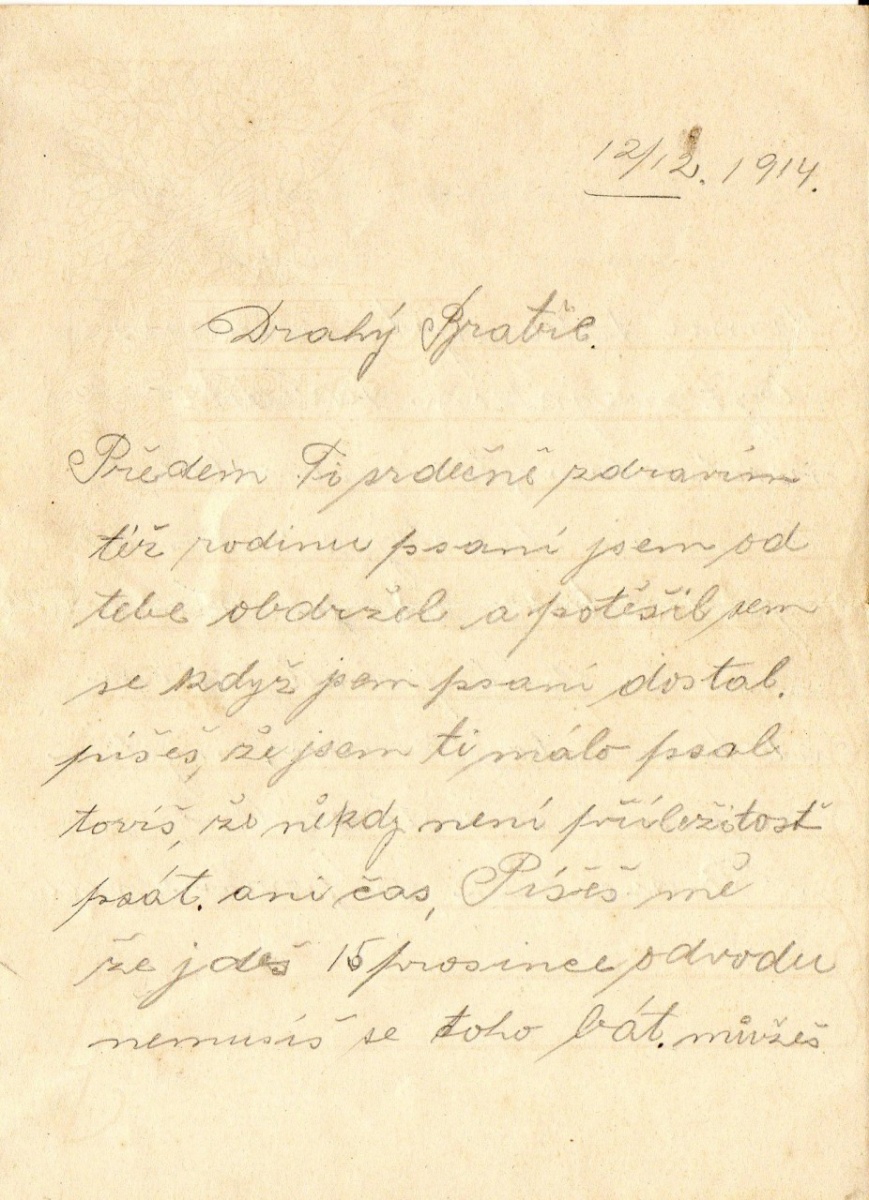 12/12. 1914.
Drahý Bratře.
Předem Ti srdečně zdravím
též rodinu psaní jsem od
tebe obdržel a potěšil sem
se když jsem psaní dostal.
píšeš, že jsem ti málo psal
tovíš, že někdy není příležitost
psát. ani čas, Píšeš mě
že jdeš 15 prosince odvodu
nemusíš se toho bát. můžeš